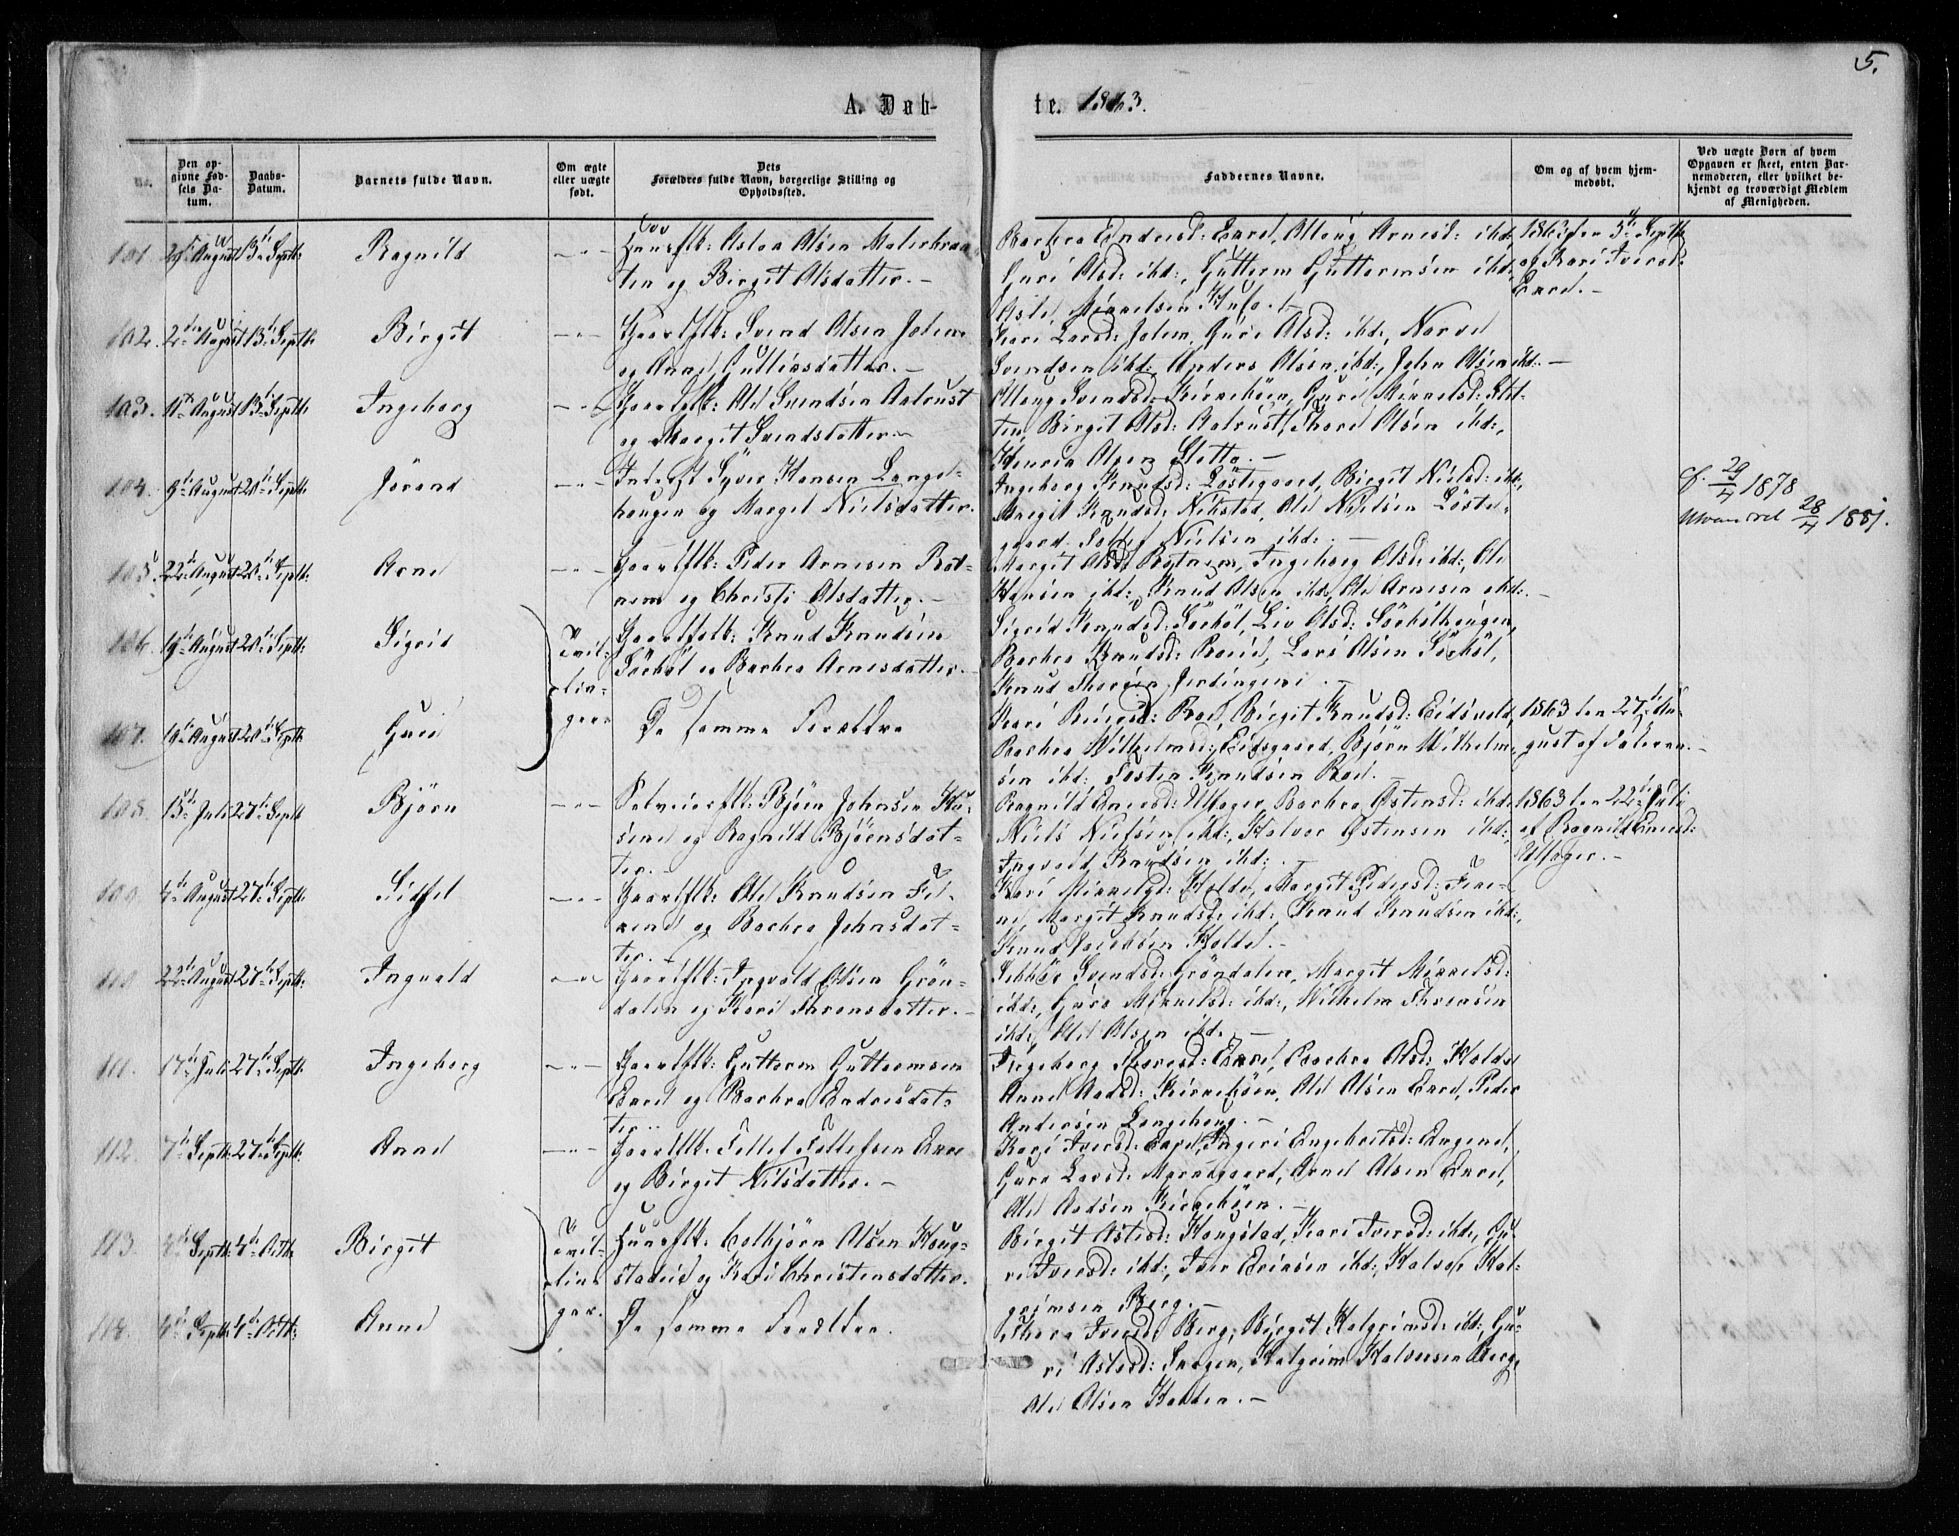 5.
A. Døb-
te. 1863.
No.
Den opgivne Fødsels Datum.
Daabs-Datum.
Barnets fulde Navn.
Om ægte eller uægte født.
Dets Forældres fulde Navn, borgerlige Stilling og Opholdssted.
Faddernes Navne.
Om og af hvem hjemmedøbt.
Ved uægte Børn af hvem Opgaven er skeet, enten Barnemoderen, eller hvilket bekjendt og troværdigt Medlem af Menigheden.
101. August 13de Septb: Ragnild
Huusflk: Aslak Olsen
ten og Birgit Olsdatter. —
Barbra Endresd: Enred, Arnesd: ibd:,
Guri Olsd: ibd:, Guttorm Guttormsen ibd:
1863 den 5te Septb:
af Kari Iversd:
Enred. —
102. 2den August 13de Septb: Birgit
Gaardflk: Svend Olsen Jolem
og Anne Gulliksdatter. —
Kari Larsd: Jolem, Guri Olsd: ibd:, Narve
Svendsen ibd:, Anders Olsen ibd:, John Olsen ibd: —
103. August 13de Septb: Ingeborg
Gaardflk: Ole Svendsen Aalrust
og Margit Svendsdatter —
Svendsd: Kirkebøen, Guri Mikkelsd: Slet-
ten, Birgit Olsd: Aalrust, Thore Olsen ibd:,
Henrik Olsen Sletto. —
104. 9de August 20de Septb: Jørand
Inderst Syver Hansen Lange-
haugen og Margit Nielsdatter.
Ingeborg Knudsd: Løstegaard, Birgit Nielsd: ibd:,
Margit Knudsd: Nibstad, Ole Nielsen Løste-
gaard, Nielsen ibd: —
29/4 1878
28/4 1881.
105. 22de August 20de Septb: Arne
Gaardflk: Peder Arnesen Rot-
nem og Christi Olsdatter. —
Margit Olsd: Rotnem, Ingeborg Olsd: ibd:, Ole
Hansen ibd:, Knud Olsen ibd:, Ole Arnesen ibd: —
106. 19de August 20de Septb: Sigrid
Tvil-
lin-
ger
Gaardfolk: Knud Knudsen
Sørbøl og Barbra Arnesdatter.
Sigrid Knudsd: Sørbøl, Liv Olsd: Sørbølhaugen,
Barbra Knudsd: Roeid, Lars Olsen Sørbøl,
Knud Thoresen —
107. 19de August 20de Septb: Guri
De samme Forældre
Kari Roe, Birgit Knudsd: Eidsvold,
Barbra Wilhelmsd: Eidsgaard, Bjørn Wilhelm-
sen ibd:, Tosten Knudsen Roe. —
1863 den 27de Au-
gust af Faderen. —
108. 13de Juli 27de Septb: Bjørn
Selveierflk: Bjørn Johnsen Hu-
sene og Ragnild Bjørnsdat-
ter. —
Ragnild Ulsager, Barbra Østensd: ibd:,
Niels Nielsen ibd:, Halvor Østensen ibd:,
Ingvald Knudsen ibd:. —
1863 den 22de Juli
af Ragnild
Ulsager. —
109. 4de August 27de Septb: Sidsel
Gaardflk: Ole Knudsen
og Barbra Johnsdat-
ter. —
Kari Mikkelsd: Holde, Margit Pedersd:
Margit Knudsd: ibd:, Knud Knudsen ibd:,
Knud Jacobsen Holde. —
110. 22de August 27de Septb: Ingvald
Gaardflk: Ingvald Olsen Grøn-
dalen og Kari Thronsdatter. —
Svendsd: Grøndalen, Margit Mikkelsd:
ibd:, Guro Mikkelsd: ibd:, Wilhelm Thronsen
ibd:, Ole Olsen ibd: —
111. 17de Juli 27de Septb: Ingeborg
Gaardflk: Guttorm Guttormsen
Enred og Barbra Endresdat-
ter.
Ingeborg Thoresd: Enred, Barbra Olsd: Holde,
Anne Aadsd: Kirkebøen, Ole Olsen Enred, Peder
Andersen Langehaug. —
112. 7de Septb: 27de Septb: Anne
Gaardflk: Tollef Tollefsen Enre
og Birgit Nilsdatter. —
Kari Iversd: Enred, Ingeri Engebretsd: Engene,
Guro Larsd: Arne Olsen Enred,
Ole Aadsen Kirkebøen. —
113. 4de Septb: 4de Octb: Birgit
Tvil-
lin-
ger.
Huusflk: Colbjørn Olsen Haug-
stadeie og Kari Christensdatter.
Birgit Astesd: Haugstad, Kari Iversd: ibd:, Gu-
ri Iversd: ibd:, Iver Eriksen ibd:, Halvor Hal-
grimsen Berg. —
114. 4de Septb: 4de Octb: Anne
De samme Forældre.
Thora Iversd: Berg, Birgit Halgrimsd: ibd:, Gu-
ri Astesd: Halgrim Halvorsen Berg,
Ole Olsen —